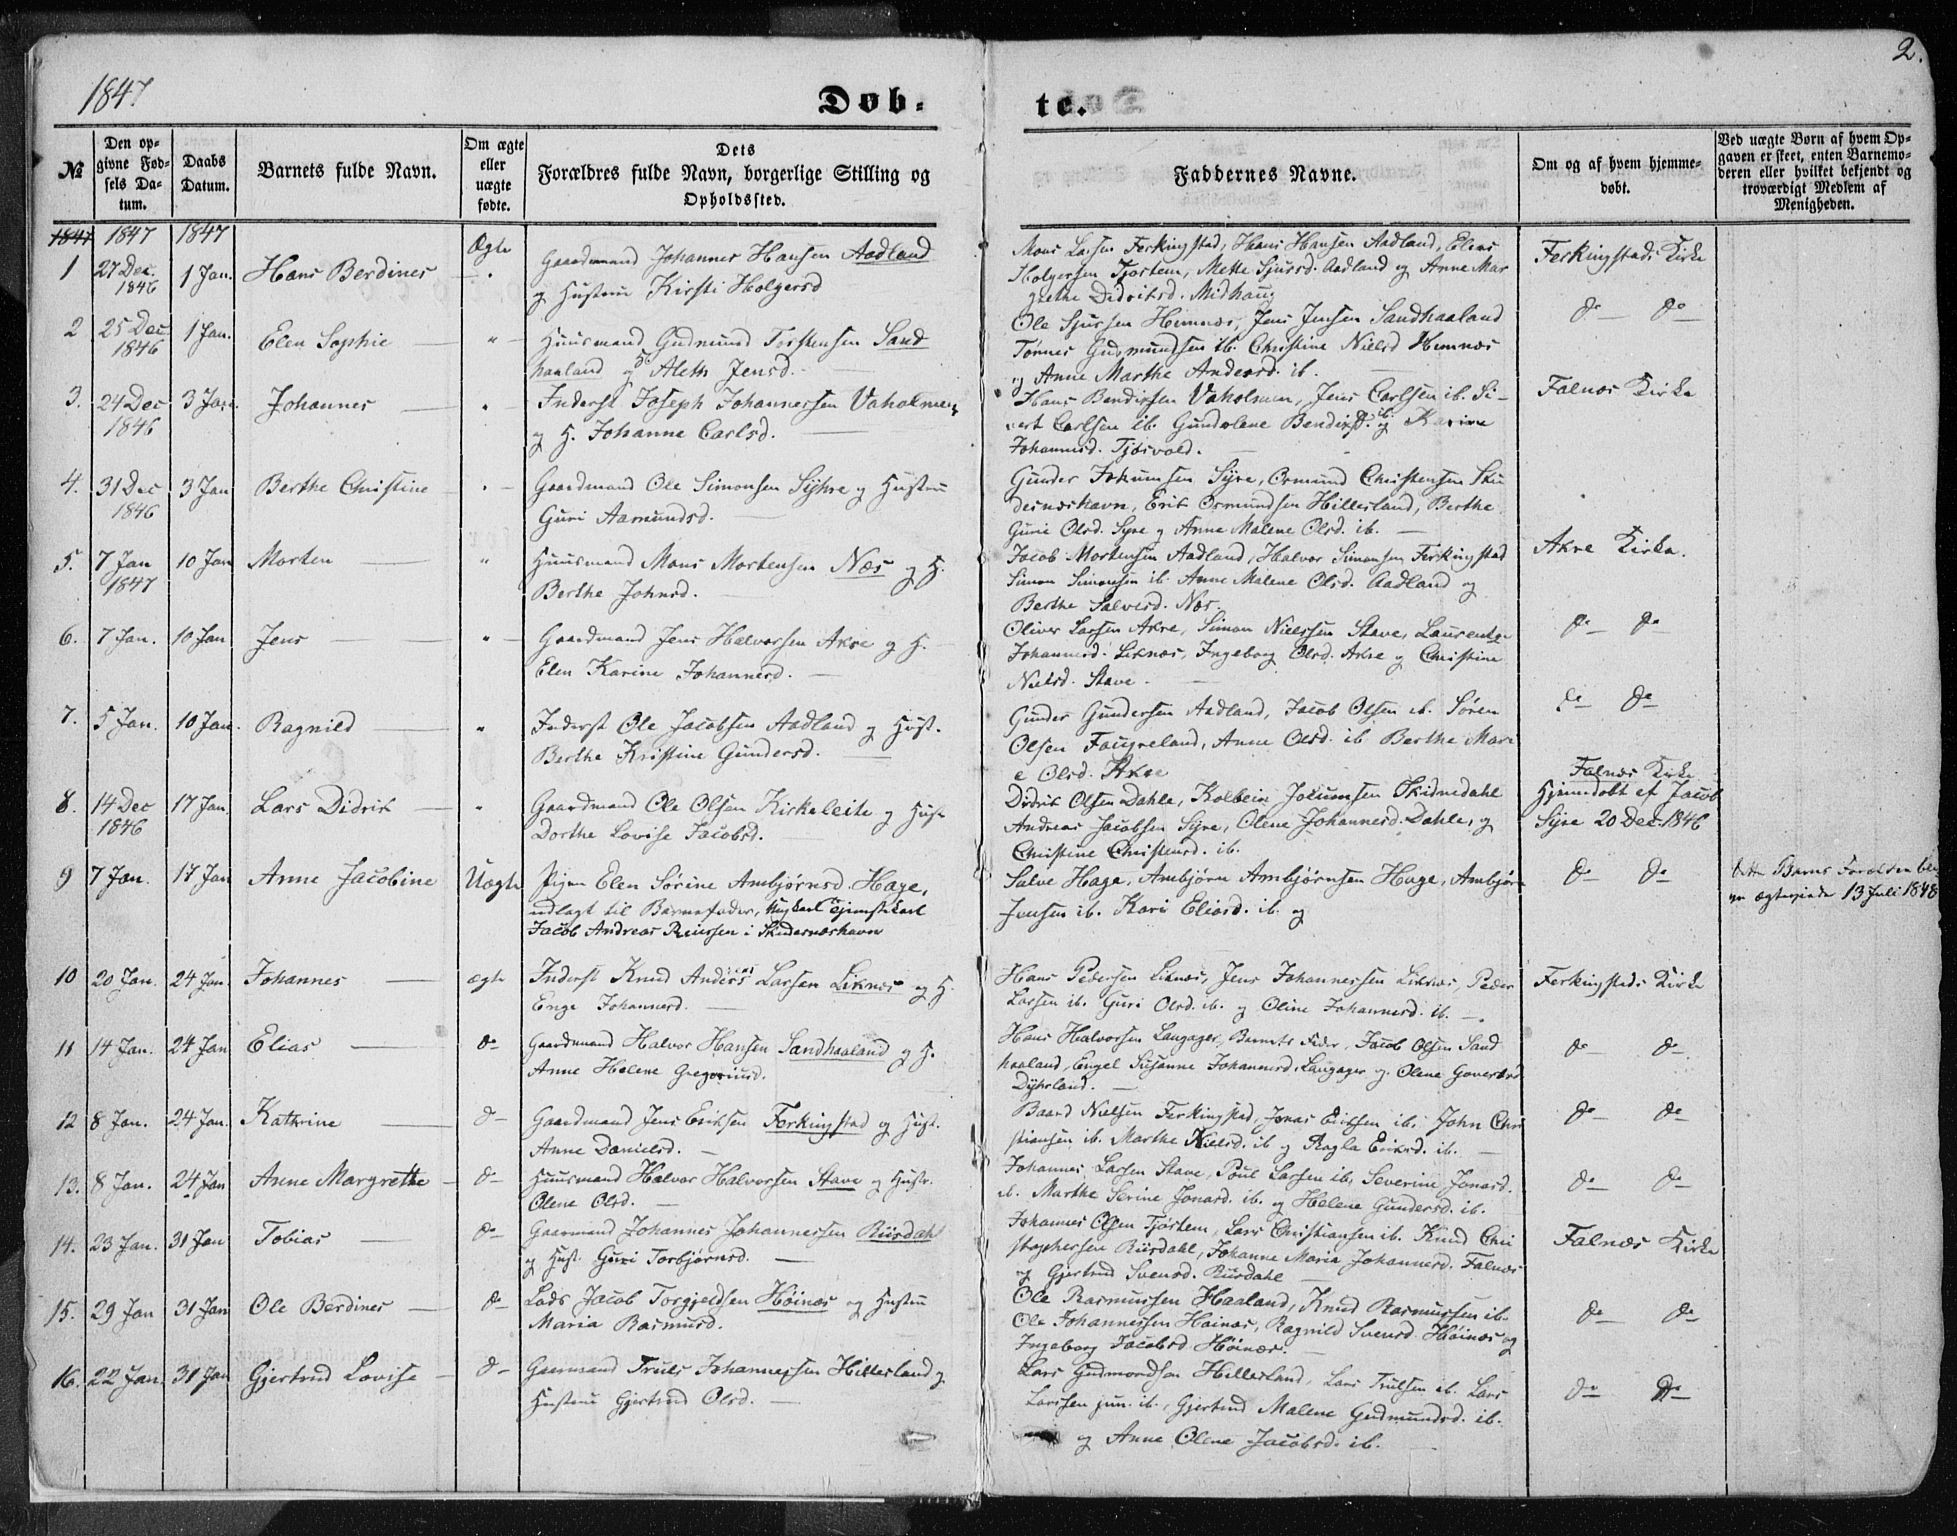 1847
Døb-
te.
2.
№
Den opgivne Fødsels Datum.
Daabs Datum.
Barnets fulde Navn.
Om ægte eller uægte fødte.
Dets
Forældres fulde Navn, borgerlige Stilling og
Opholdssted.
Faddernes Navne.
Om og af hvem hjemmedøbt.
Ved uægte Børn af hvem Opgaven er skeet, enten Barnemoderen eller hvilket bekjendt og troværdigt Medlem af Menigheden.
1847 1847 1847
1 27 Dec. 1846 1 Jan. Hans Berdines Ægte
Gaardmand Johannes Hansen Aadland
og Hustrue Kirsti Holgersd
Mons Larsen Ferkingstad, Hans Hansen Aadland, Elias
Holgersen Tjøstem, Mette Sjursd. Aadland og Anne Mar
grethe Didriksd. Midhaug
Ferkingstads Kirke
2 25 Dec 1846 1 Jan. Elen Sophie "
Huusmand Gudmund Torstensen Sand
haaland og Aleth Jensd.
Ole Sjursen Hemnæs, Jens Jensen Sandhaaland
Tønnes Gudmundsen ib. Christine Nielsd Hemnæs
og Anne Marthe Andersd. ib.
do do
3. 24 Dec 1846 3 Jan. Johannes "
Inderst Joseph Johannessen Vaholmen
og H. Johanne Carlsd.
Hans Bendixsen Vaholmen, Jens Carlsen ib. Si-
vert Carlsen ib. Gunderlene Bendixsd. ib. og Karine
Johannesd. Tjøsvold.
Falnæs Kirke
4. 31 Dec 1846 3 Jan Berthe Christine "
Gaardmand Ole Simonsen Syhre og Hustru
Guri Aamundsd.
Gunder Jokumsen Syre, Ormund Christensen Sku
desnæshavn, Erik Osmundsen Hillesland, Berthe
Gurie Olsd. Syre og Anne Malene Olsd. ib.
5. 7 Jan 1847 10 Jan Morten "
Huusmand Mons Mortensen Næs og H.
Berthe Johnsd.
Jacob Mortensen Aadland, Halvor Simonsen Ferkingstad
Simon Simonsen ib. Anne Malene Olsd. Aadland og
Berthe Salvesd. Næs.
Akre Kirke.
6. 7 Jan. 10 Jan Jens "
Gaardmand Jens Halvorsen Akre og H.
Elen Karine Johannesd.
Oliver Larsen Akre, Simon Nielssen Stave, Laurentze
Johannesd. Liknæs, Ingeborg Olsd. Akre og Christine
Nielsd. Stave.
do do
7. 5 Jan. 10 Jan. Ragnild "
Inderst Ole Jacobsen Aadland og Hust.
Berthe Kristine Gundersd.
Gunder Gundersen Aadland, Jacob Olsen ib. Søren
Olsen Faugreland, Anne Olsd. ib Berthe Mari
e Olsd. Akre
do do
8. 14 Dec 1846 17 Jan. Lars Didrik "
Gaardmand Ole Olsen Kirkeleite og Hust
Dorthe Lovise Jacobsd.
Didrik Olsen Dahle, Kolbein Jokumsen Skidnedahl
Andreas Jacobsen Syre, Olene Johannesd. Dahle, og
Christine Christensd. ib.
Falnæs Kirke
Hjemdøbt af Jacob
Syre 20 Dec. 1846
9 7 Jan. 17 Jan Anne Jacobine Uægte
Pigen Elen Sørine Ambjørnsd. Hage,
udlagt til Barnefader, Ungkarl Tjenestekarl
Jacob Andreas Reiersen i Skudesnæshavn
Salve Hage, Ambjørn Ambjørnsen Hage, Ambjørn
Jensen ib. Kari Eliasd. ib. og
do do
dette Barns Forældre bleve
ægteviede 13 Juli 1848
10 20 Jan. 24 Jan. Johannes ægte
Inderst Knud Anders Larsen Liknæs og H.
Enge Johannesd.
Hans Pedersen Liknæs, Jens Johannessen Liknæs, Peder
Larsen ib. Guri Olsd. ib. og Oline Johannesd. ib.
Ferkingstads Kirke
11 14 Jan. 24 Jan Elias do
Gaardmand Halvor Hansen Sandhaaland og H.
Anne Helene Gregoriusd.
Hans Halvorsen Langager, Barnets Fader, Jacob Olsen Sand
haaland, Engel Susanne Johannesd. Langager og Olene Govertsd.
Dyhrland.
do do
12 8 Jan. 24 Jan. Kathrine do
Gaardmand Jens Eriksen Ferkingstad og Hust.
Anne Danielsd.
Baard Nielsen Ferkingstad, Jonas Eriksen ib. John Chri
stiansen ib. Marthe Nielsd. ib og Ragla Eriksd. ib.
do do
13. 8 Jan. 24 Jan Anne Margrethe do
Huusmand Halvor Halvorsen Stave og Hustr.
Olene Olsd.
Johannes Larsen Stave, Poul Larsen ib, Severine Jonasd.
ib. Marthe Serine Jonasd. ib. og Helene Gundersd. ib.
do do
14. 23 Jan. 31 Jan Tobias do
Gaarmand Johannes Johannessen Riisdahl
og Hust. Guri Torbjørnsd.
Johannes Olsen Tjøstem, Lars Christiansen ib. Knud Chri
stophersen Riisdahl, Johanne Maria Johannesd. Falnæs
og Gjertrud Svensd. Riisdahl
Falnæs Kirke
15. 29 Jan 31 Jan Ole Berdines do
Lods Jacob Torgjeldsen Høinæs og Hustru
Maria Rasmusd.
Ole Rasmussen Haaland, Knud Rasmussen ib.
Ole Johannessen Høinæs, Ragnild Svensd. Høinæs og
Ingeborg Jacobsd Høinæs.
do do
16. 22 Jan. 31 Jan Gjertrud Lovise do
Gaarmand Truls Johannessen Hillesland og
Hustru Gjertrud Olsd.
Lars Gudmondsen Hillesland, Lars Trulsen ib. Lars
Larssen jun. ib., Gjertrud Malene Gudmundsd. ib.
og Anne Olene Jacobsd. ib.
do do